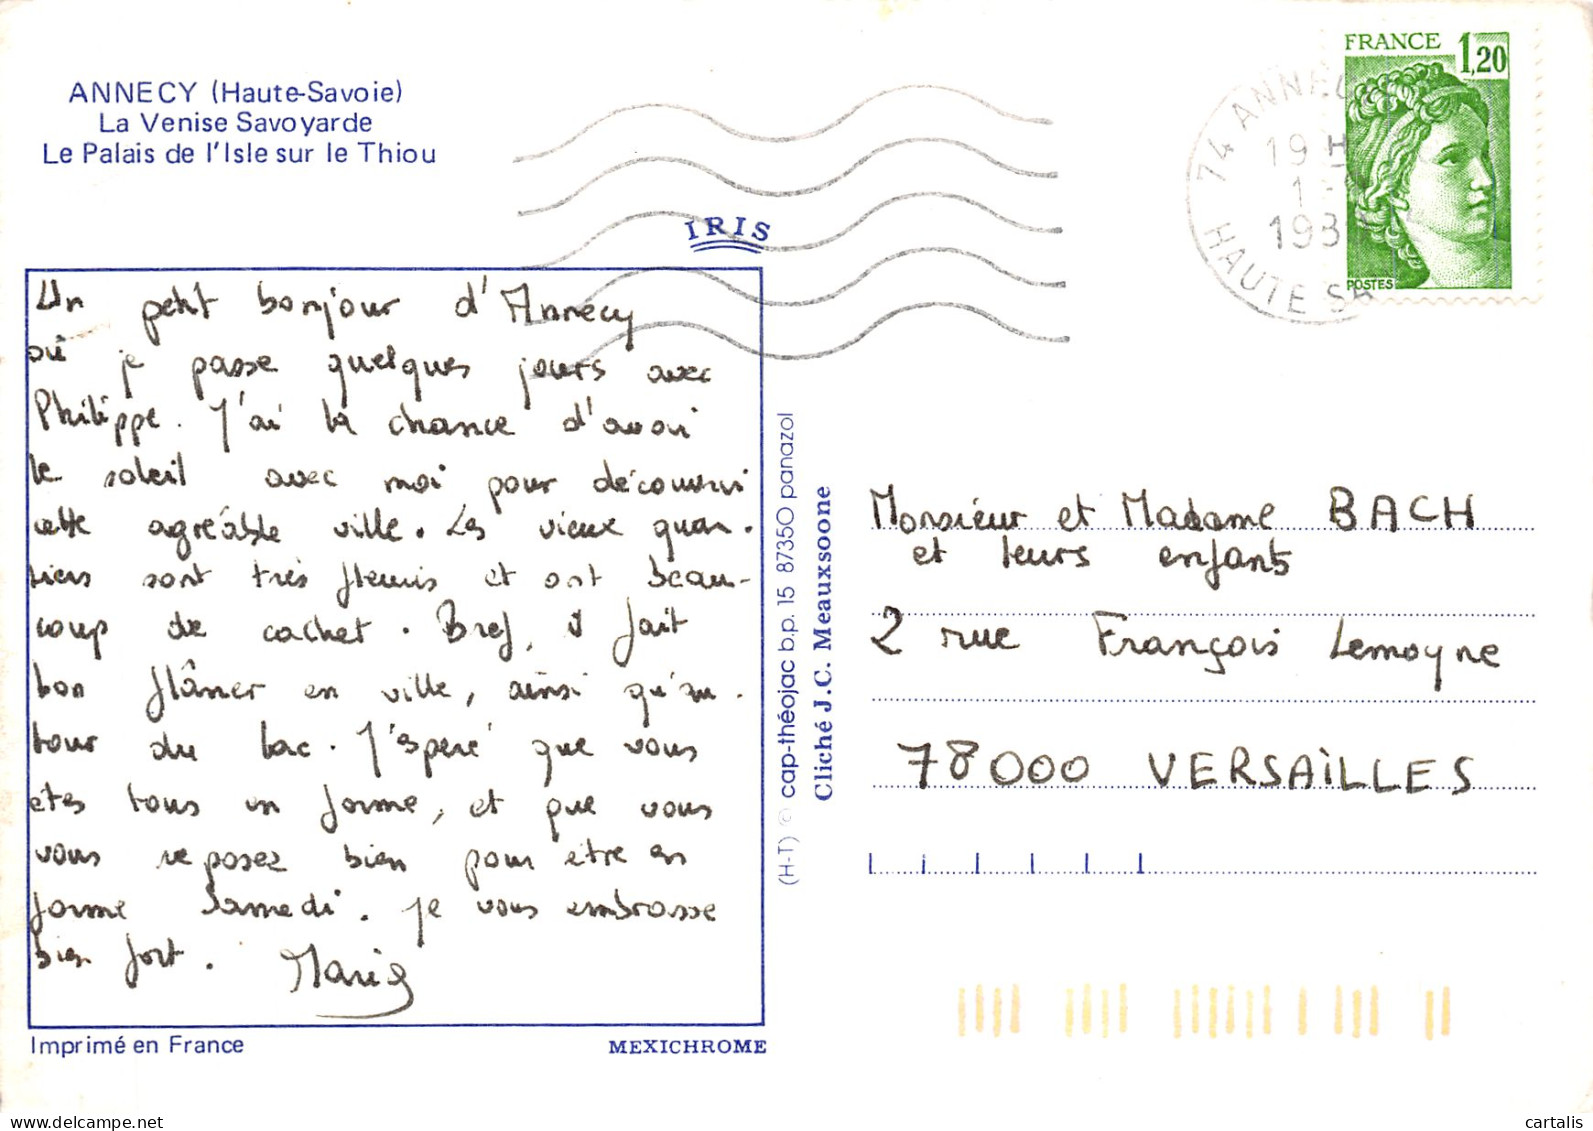 ANNECY (Haute-Savoie)
La Venise Savoyarde
Le Palais de l'Isle sur le Thiou
IRIS
FRANCE 1,20
POSTES
74 ANNEC
19H
1
198
HAUTE SA
Un petit bonjour d'Annecy
où je passe quelques jours avec
Philippe. J'ai la chance d'avoir
le soleil avec moi pour découvrir
cette agréable ville. Les vieux quar-
tiers sont très fleuris et ont beau-
coup de cachet. Bref, il fait
bon flâner en ville, ainsi qu'au-
tour du lac. J'espère que vous
etes tous en forme, et que vous
vous reposez bien pour être en
forme Samedi. Je vous embrasse
bien fort. Marie
Imprimé en France
MEXICHROME
(H-T) © cap-théojac b.p. 15 87350 panazol
Cliché J.C. Meauxsoone
Monsieur et Madame BACH
et leurs enfants
2 rue François Lemoyne
78000 VERSAiLLES
cartalis